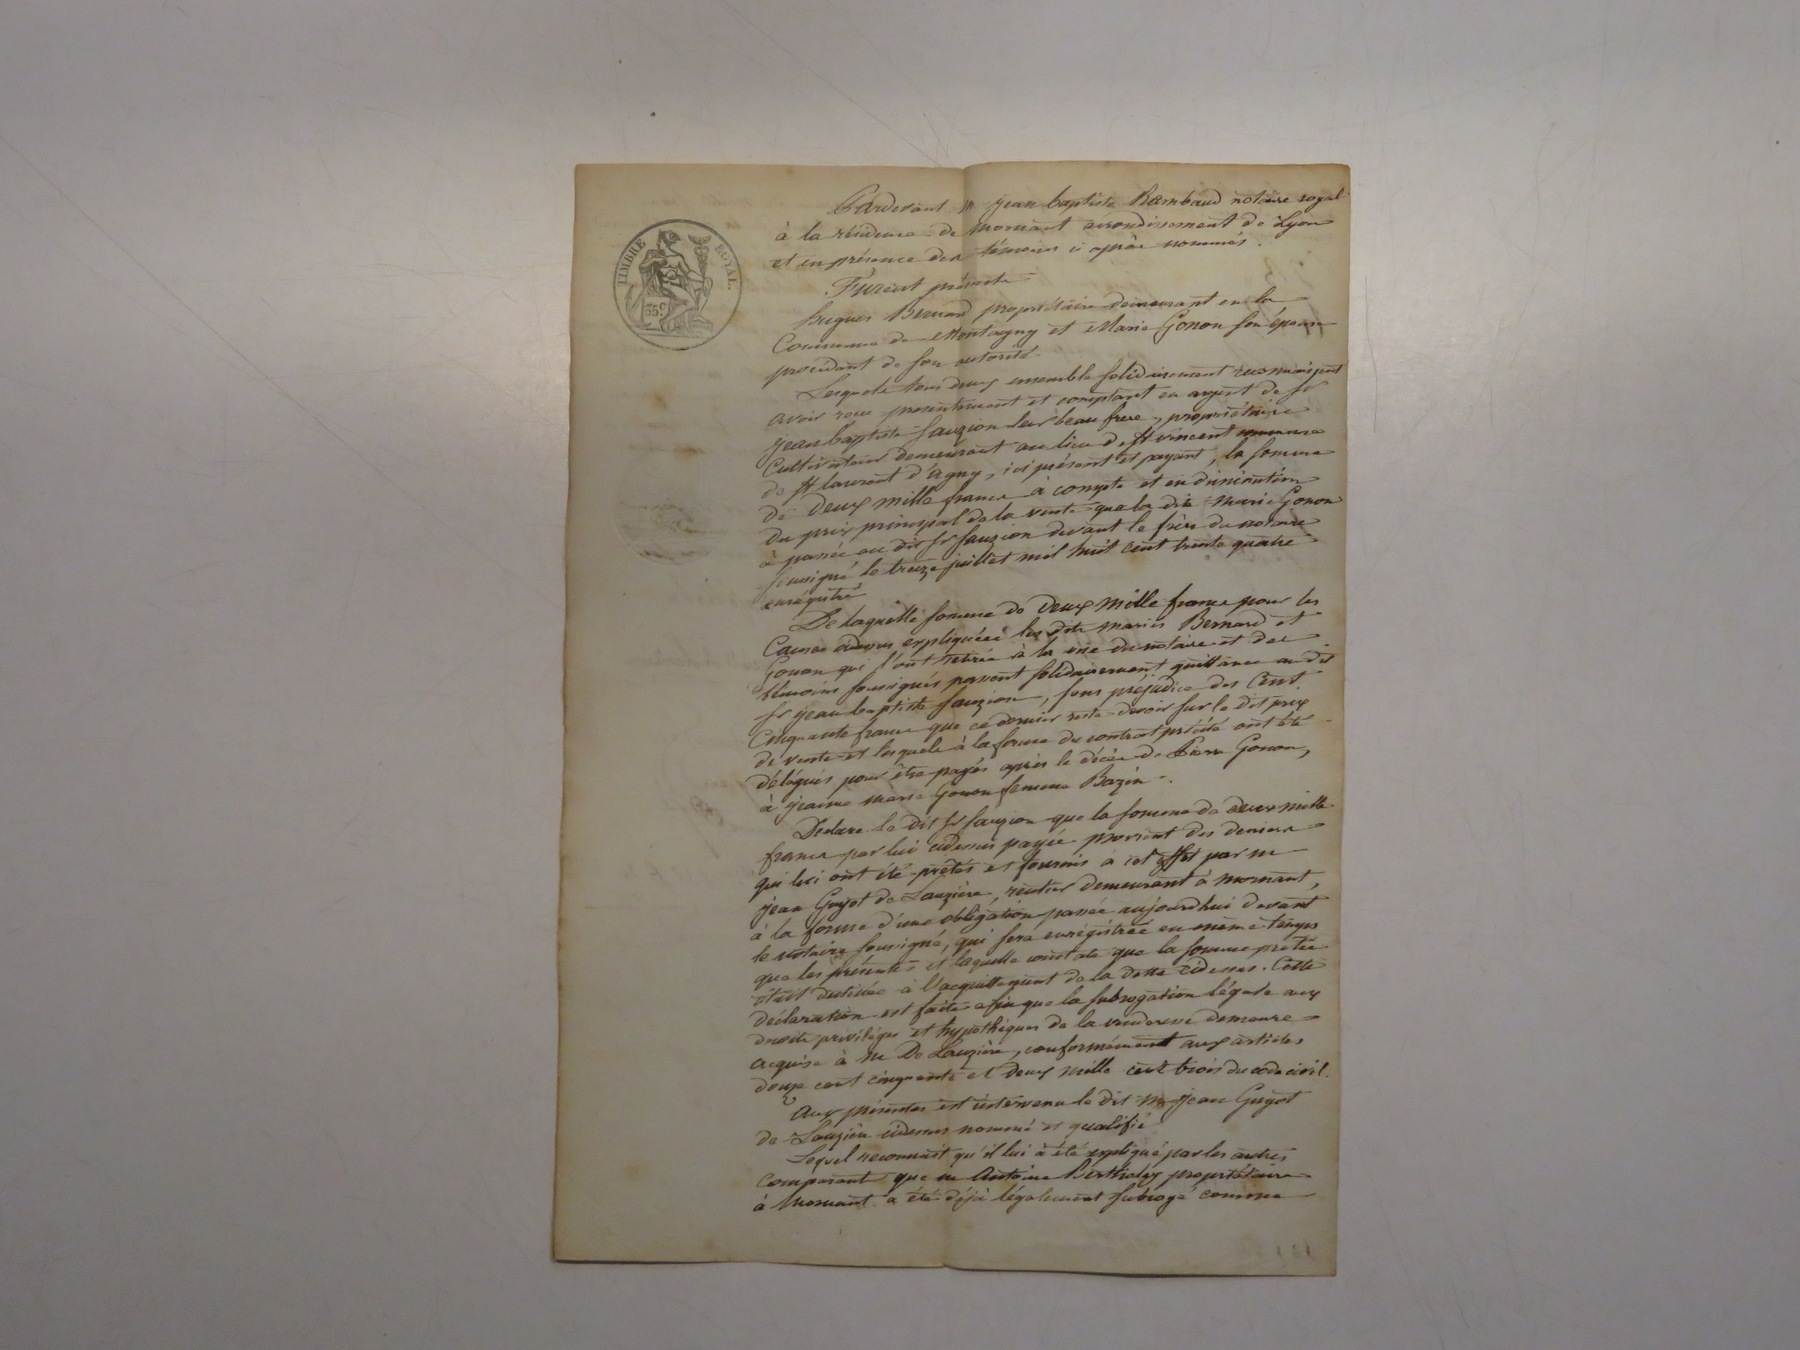 TIMBRE ROYAL.
35 c
Pardevant Me jean baptiste Rambaud notaire royal
à la résidence de Mornant arrondissement de Lyon
et en présence des témoins ci après nommés.
Furent présents
hugues Bernard propriétaire demeurant en la
Commune de Montagny et Marie Gonon son épouse
procédant de son autorité
Lesquels tous deux ensemble solidairement reconnaissent
avoir reçu présentement et comptant en argent de sr
jean baptiste fauzion leur beau frere, propriétaire
Cultivateur demeurant au lieu de st vincent commune
de st laurent d'agny, ici présent et payant, la somme
de deux mille francs à compte et en diminution
du prix principal de la vente que la dite marie Gonon
à passée au dit sr fauzion devant le frère du notaire
soussigné le treize juillet mil huit cent trente quatre
enrégistré
De laquelle somme de deux mille francs pour les
Causes cidessus expliquées les dits mariés Bernard et
Gonon qui l'ont retirée à la vue du notaire et des
témoins soussignés passent solidairement quittance au dit
sr jean baptiste fauzion, sans préjudice des Cent
Cinquante francs que ce dernier reste devoir sur le dit prix
de vente et lesquels à la forme du contrat précité ont été
délégués pour être payés après le décès de Pierre Gonon,
à jeanne marie Gonon femme Bazin.
Déclare le dit sr fauzion que la somme de deux mille
francs par lui cidessus payée provient des deniers
qui lui ont été prêtés et fournis à cet effet par mr
jean Guyot de Lauzière, rentier demeurant à mornant,
à la forme d'une obligation passée aujourdhui devant
le notaire soussigné, qui sera enrégistrée en même temps
que les présentes et laquelle constate que la somme prêtée
était destinée à l'acquittement de la dette cidessus. Cette
déclaration est faite afin que la subrogation légale aux
droits privilèges et hypothèques de la venderesse demeure
acquise à mr De Lauzière, conformément aux articles
douze cent cinquante et deux mille cent trois du code civil.
Aux présentes est intervenu le dit mr jean Guyot
de Lauzière cidessus nommé et qualifié
Lequel reconnait qu'il lui à été expliqué par les autres
comparants que mr Antoine Bertholey propriétaire
à Mornant a été déjà légalement subrogé comme